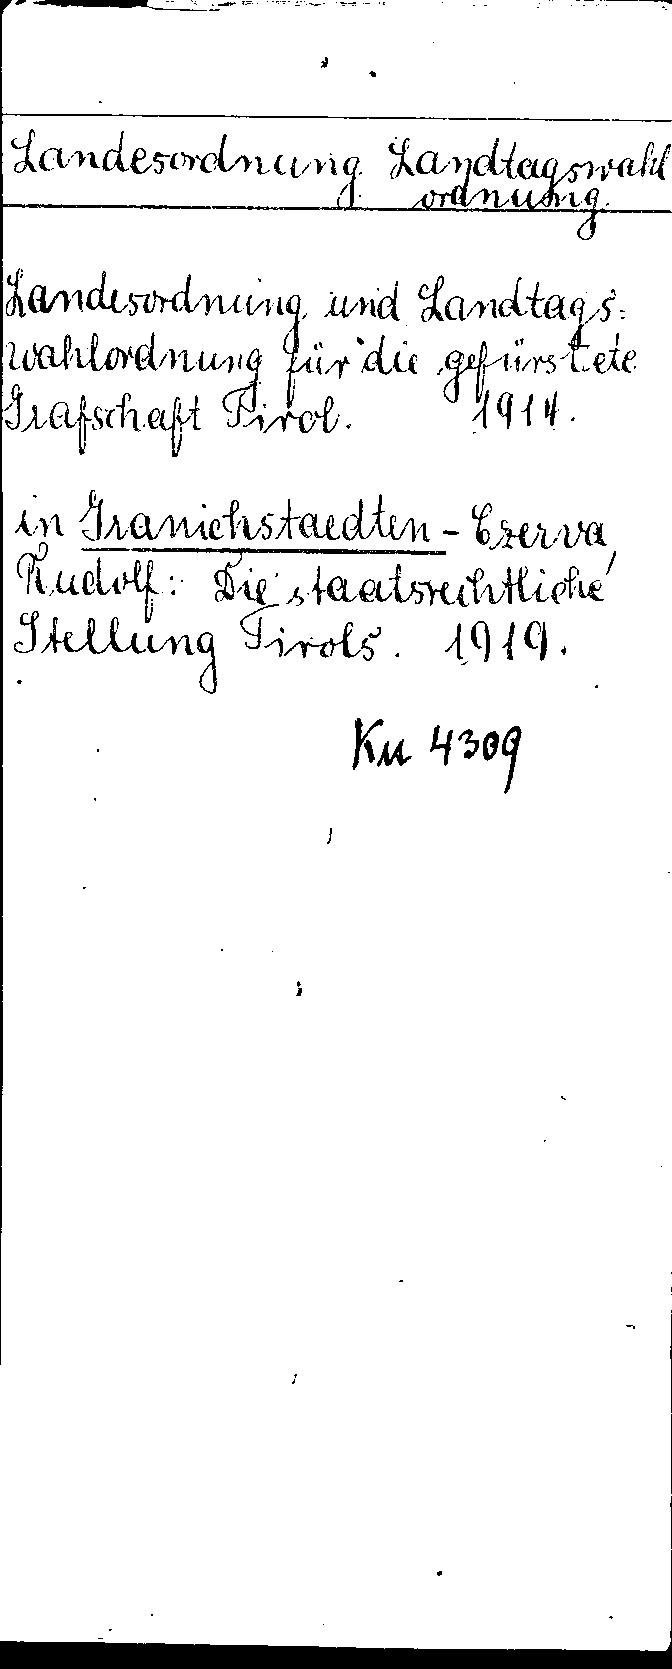 Landesordnung Landtagswahl
ordnung.
Landesordnung und Landtags=
wahlordnung für die gefürstete
Grafschaft Tirol. 1914.
in Granichstaedten-Czerva,
Rudolf: Die staatsrechtliche
Stellung Tirols. 1919.
Ku 4309